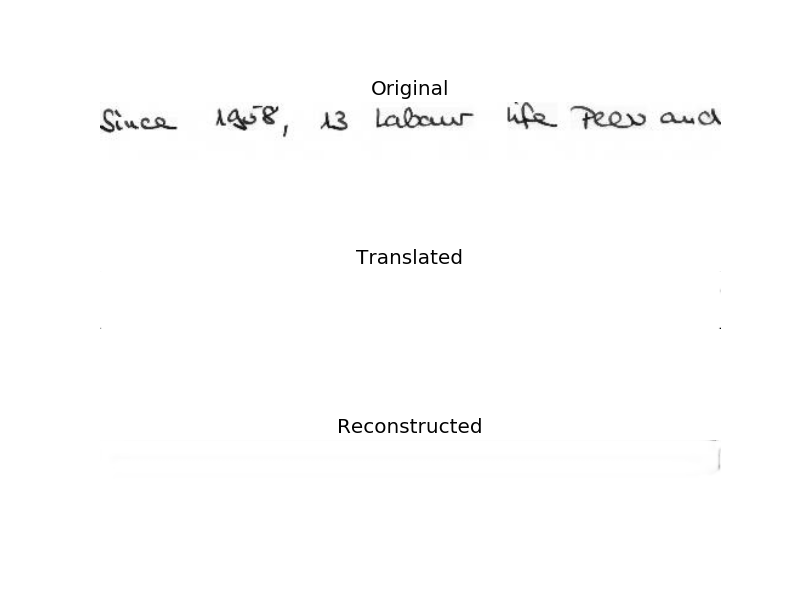 Original
Since 1958, 13 Labour life Peers and
Translated
Reconstructed